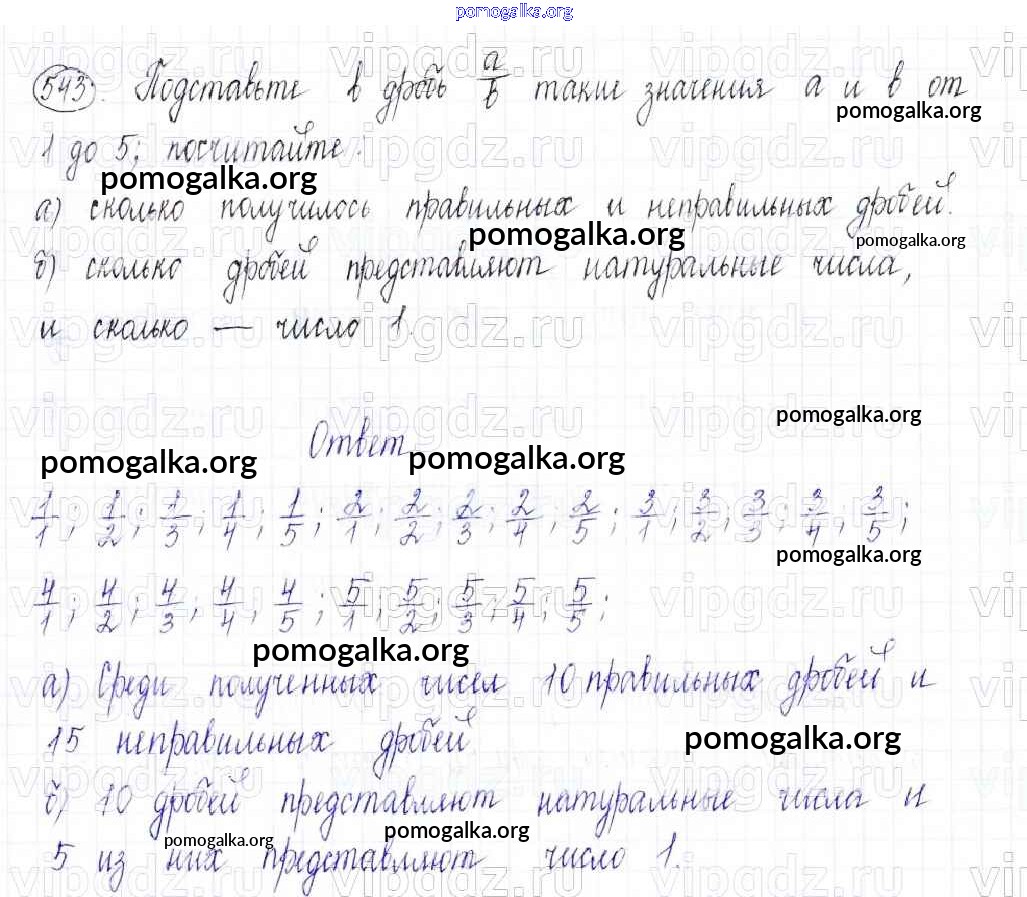 pomogalka.org
543. Подставьте в дробь a/b такие значения a и b от
pomogalka.org
1 до 5; посчитайте:
pomogalka.org
а) сколько получилось правильных и неправильных дробей.
pomogalka.org
pomogalka.org
б) сколько дробей представляют натуральные числа,
и сколько — число 1.
pomogalka.org
Ответ
pomogalka.org
pomogalka.org
1/1; 1/2; 1/3; 1/4; 1/5; 2/1; 2/2; 2/3; 2/4; 2/5; 3/1; 3/2; 3/3; 3/4; 3/5;
pomogalka.org
4/1; 4/2; 4/3; 4/4, 4/5; 5/1; 5/2; 5/3; 5/4; 5/5;
pomogalka.org
а) Среди полученных чисел 10 правильных дробей и
15 неправильных дробей
pomogalka.org
б) 10 дробей представляют натуральные числа и
pomogalka.org
pomogalka.org
5 из них представляют число 1.
vipgdz.ru